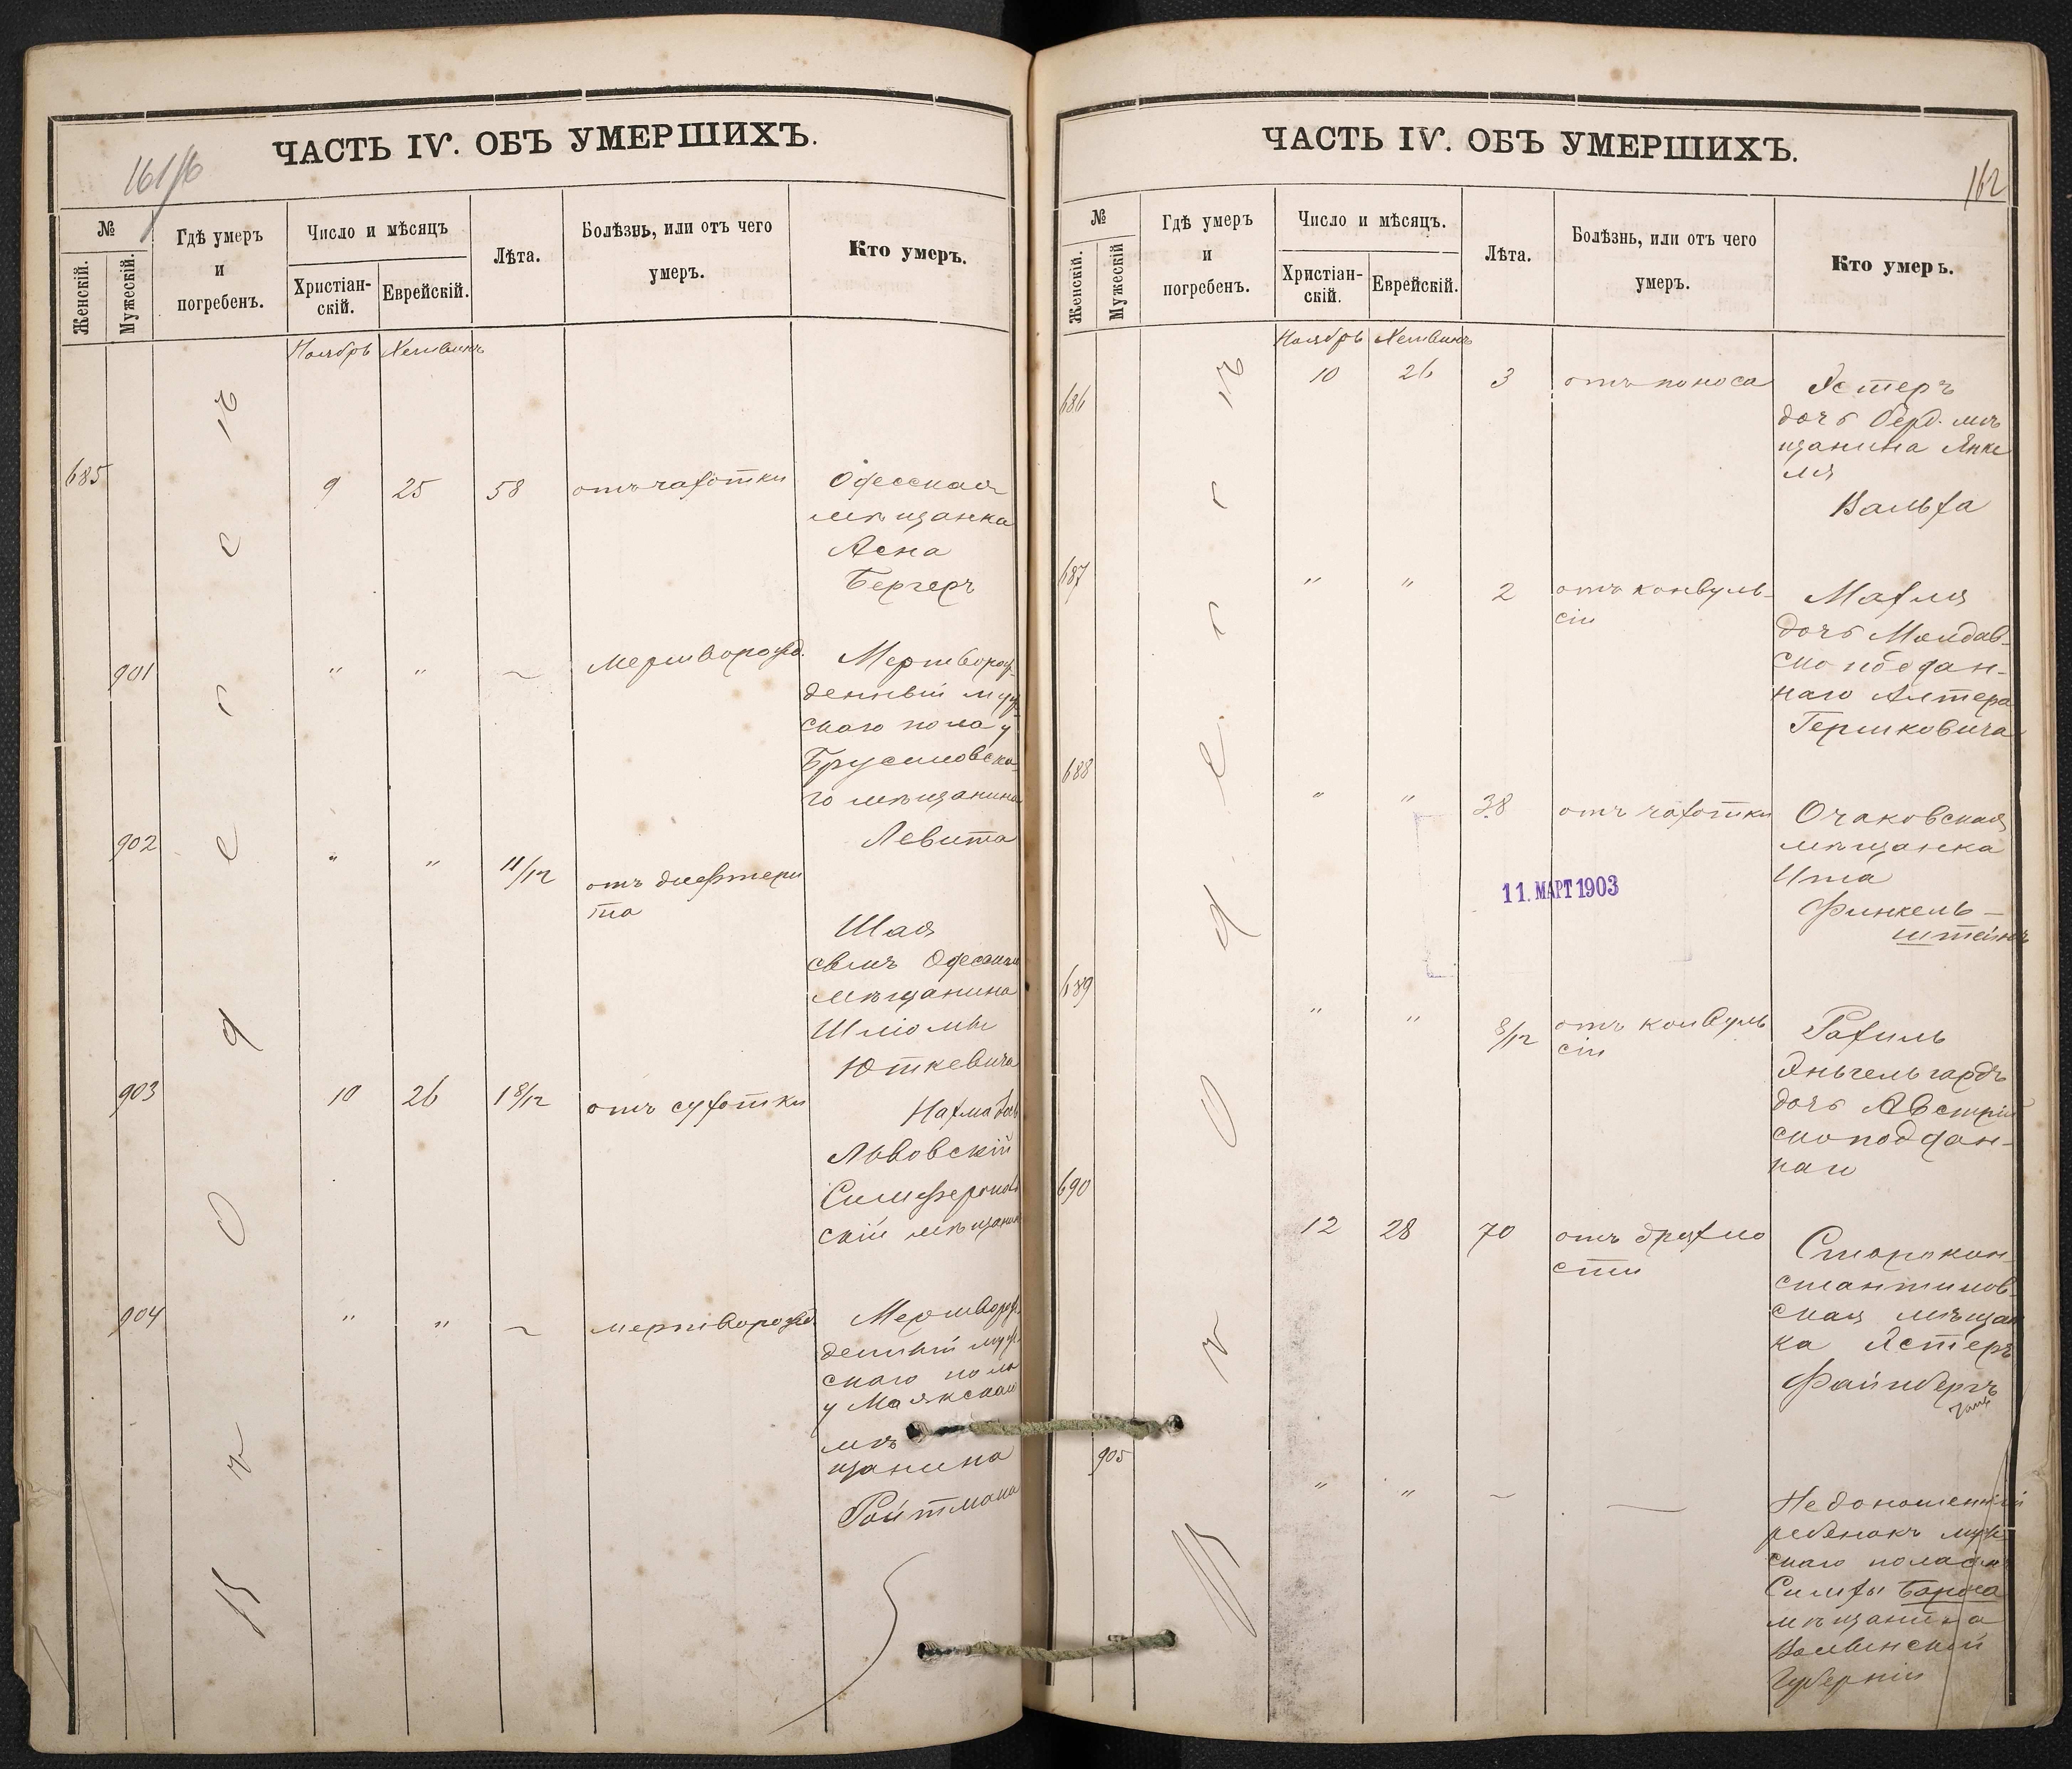 ЧАСТЬ IV. ОБЪ УМЕРШИХЪ.
№
Женскій.
Мужескій.
Гдѣ умеръ
и
погребенъ.
Число и мѣсяцъ
Христіан-
скій.
Еврейскій.
Лѣта.
Болѣзнь, или отъ чего
умеръ.
Кто умеръ.
Ноябрь Хешвинъ
685 9 25 58 отъ чахотки Одесская
мѣщанка
Асна
Бергеръ
901 " " ~ мертворожд. Мертворож-
денный муж-
скаго пола у
Брусиловска-
го мѣщанина
Левита
902 " " 11/12 отъ дифтери
та
Шая
сынъ Одесскаго
мѣщанина
Шліомы
Юткевича
903 10 26 1 8/12 отъ сухотки
Львовскій
Симферополь
скій мѣщанин
904 " " ~ мертворожд. Мертворож
денный муж
скаго пола
у Маякскаго
мѣ
щанина
Ройтмана
въ Одессѣ
ЧАСТЬ IV. ОБЪ УМЕРШИХЪ.
162
№
Женскій.
Мужескій
Гдѣ умеръ
и
погребенъ.
Число и мѣсяцъ.
Христіан-
скій.
Еврейскій.
Лѣта.
Болѣзнь, или отъ чего
умеръ.
Кто умеръ.
Ноябрь Хешвинъ
686 10 26 3 отъ поноса Эстеръ
дочь Берд. мѣ
щанина Янке
ля
Вальфа
687 " " 2 отъ конвуль-
сіи
Махля
дочь Молдав-
ско поддан-
наго Алтера
Гершковича
688 " " 38 отъ чахотки Очаковская
мѣщанка
Ита
Финкель-
штейнъ
11. МАРТ 1903
689 " " 8/12 отъ конвуль
сіи
Рахиль
Эньгельгардъ
дочь Австрій
ско поддан-
наго
690 12 28 70 отъ дряхло
сти
Старокон
стантинов-
ская мѣщан
ка Эстеръ
Файнбергъ
905 " " ~ — Недоношенный
ребенокъ муж
скаго пола
Симхи
мѣщанина
Волынской
Губерніи